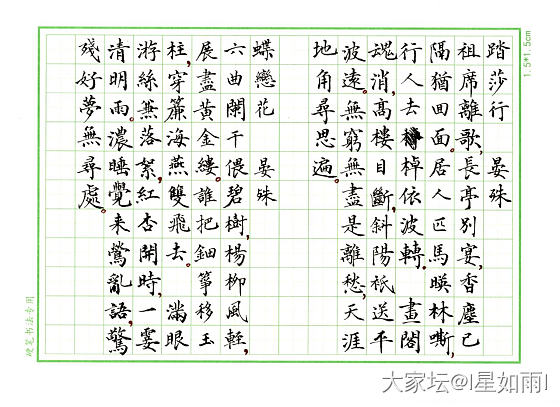 踏莎行 晏殊
祖席離歌,長亭別宴,香塵已
隔猶回面。居人匹馬暎林嘶,
行人去棹依波轉。 畫閣
魂消,高樓目斷,斜陽衹送平
波遠。無窮無盡是離愁,天涯
地角尋思遍。
蝶戀花 晏殊
六曲闌干偎碧樹,楊柳風輕,
展盡黃金縷。誰把鈿箏移玉
柱,穿簾海燕雙飛去。 滿眼
游絲兼落絮,紅杏開時,一霎
清明雨。濃睡覺来鶯亂語,驚
殘好夢無尋處。
1.5*1.5cm
硬笔书法专用
大家坛@l星如雨l